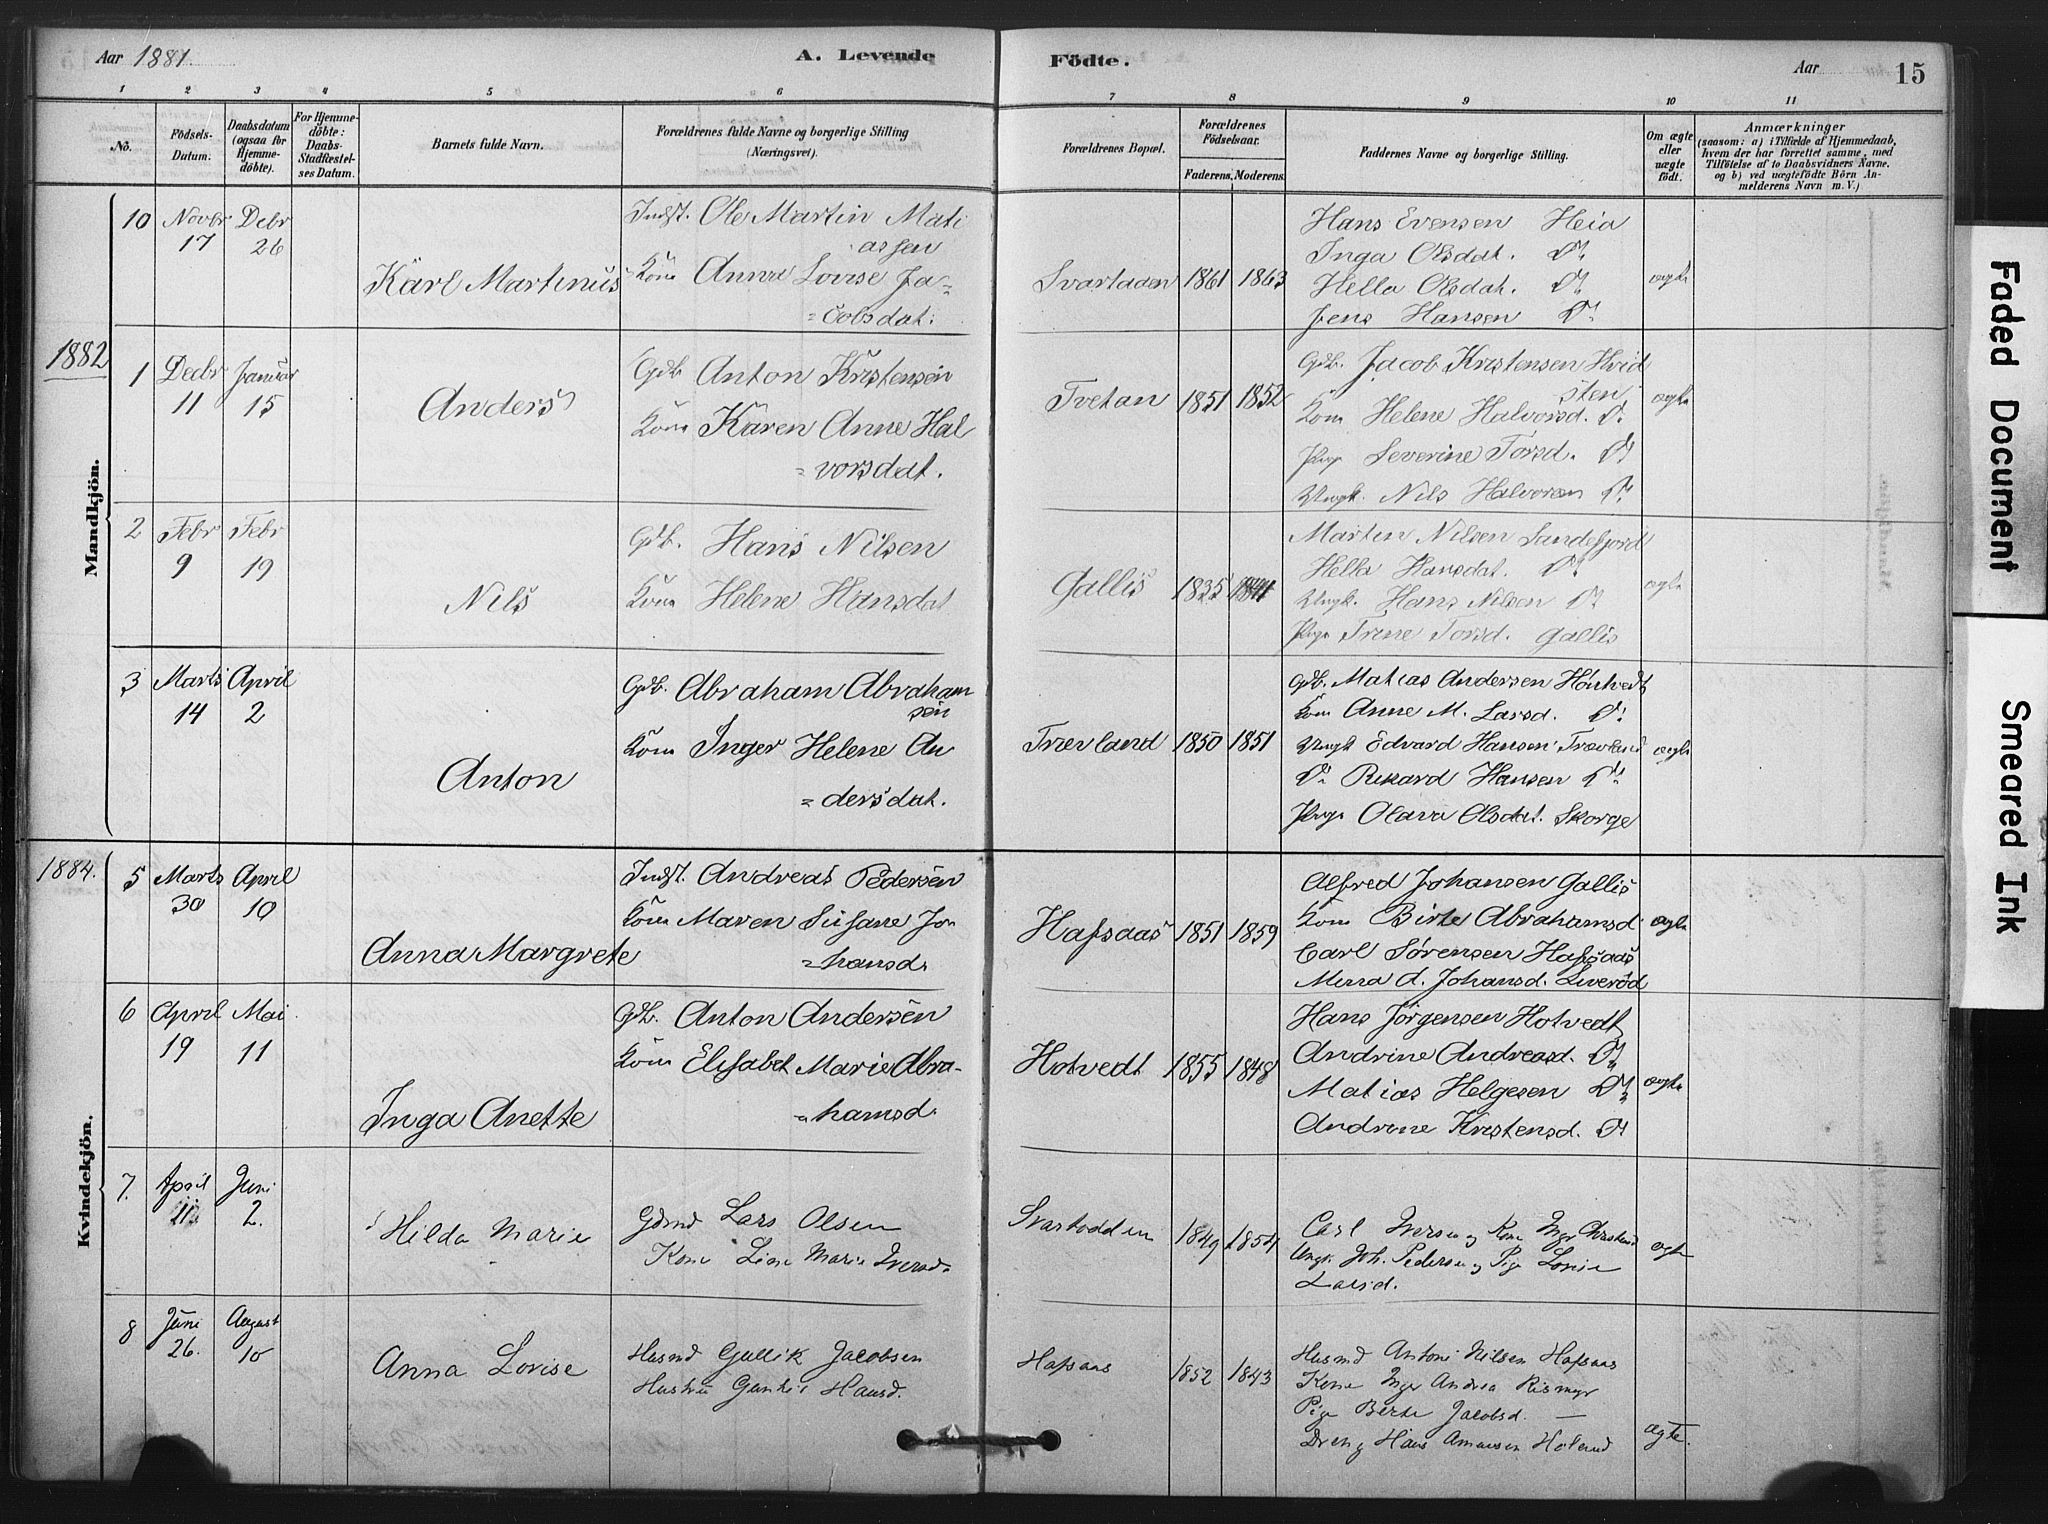 Aar 1881. A. Levende Födte. Aar 15
1 2 3 4 5 6 7 8 9 10 11
No. Födsels-Datum. Daabsdatum (ogsaa for Hjemmedöbte). For Hjemmedöbte: Daabs-Stadfæstelses Datum. Barnets fulde Navn. Forældrenes fulde Navne og borgerlige Stilling (Næringsvei). Forældrenes Bopæl. Forældrenes Födselsaar. Faderens. Moderens. Faddernes Navne og borgerlige Stilling. Om ægte eller uægte födt. Anmærkninger (saasom: a) i Tilfælde af Hjemmedaab, hvem der har forrettet samme, med Tilföielse af to Daabsvidners Navne. og b) ved uægtefödte Börn Anmelderens Navn m. V.)
Mandkjön.
10 Novbr 17 Debr 26
Karl Martinus
Indst. Ole Martin Mati
assen
Kone Anna Lovise Ja=
=cobsdat.
Svartaden 1861 1863
Hans Evensen Heia
Inga Olsdat. Do
Hella Olsdat. Do
Jens Hansen Do
ægte
1882
1 Decbr 11 Januar 15
Anders
Gdb Anton Kristensen
Kone Karen Anne Hal
=vorsdat.
Tvetan 1851 1852
Gdb. Jacob Kristensen Hvid
sten
Kone Helene Halvorsd. Do
Pige Severine Torsd. Do
Ungk. Nils Halvorsen Do
ægte
2 Febr 9 Febr 19
Nils
Gdb. Hans Nilsen
Kone Helene Hansdat
Gallis 1835 1841
Martin Nilsen Sandefjord
Hella Hansdat. Do
Ungk. Hans Nilsen Do
Pige Trine Torsd. Gallis
ægte
3 Marts 14 April 2
Anton
Gdb. Abraham Abraham
sen
Kone Inger Helene An
=dersdat.
Trævland 1850 1851
Gdb. Matias Andersen Hotvedt
Kone Anne M. Larsd. Do
Ungk Edvard Hansen Trævland
Do Rikard Hansen Do
Pige Olava Olsdat. Skorge
ægte
1884.
Kvindekjön.
5 Marts 30 April 10
Anna Margrete
Indst. Andreas Pedersen
Kone Maren Susane Jo
=hansd.
Hafsaas 1851 1859
Alfred Johansen Gallis
Kone Birte Abrahamsd
Carl Sørensen Hafsaas
Mina A. Johansd. Liverød
ægte
6 April 19 Mai 11
Inga Anette
Gdb. Anton Andersen
Kone Elisabet Marie Abra=
=hamsd.
Hotvedt 1855 1848
Hans Jörgensen Hotvedt
Andrine Andreasd. Do
Matias Helgesen Do
Andrine Kristensd. Do
ægte
7. April 21. Juni 2.
Hilda Marie
Gdmd Lars Olsen
Kone Line Marie Iversd.
Svartodden 1849 1854
Carl Iversen og Kone
Ungk. Joh. Pedersen og Pige Lovise
Larsd.
ægte
8 Juni 26. August 10
Anna Lovise
Husmd Gullik Jacobsen
Hustru Hansd.
Hafsaas 1852 1843
Husmd Anton Nilsen Hafsaas
Kone Inger Andrea Rismyr
Pige Berte Jacobsd. —
Dreng Hans
ægte.
Faded Document
Smeared Ink